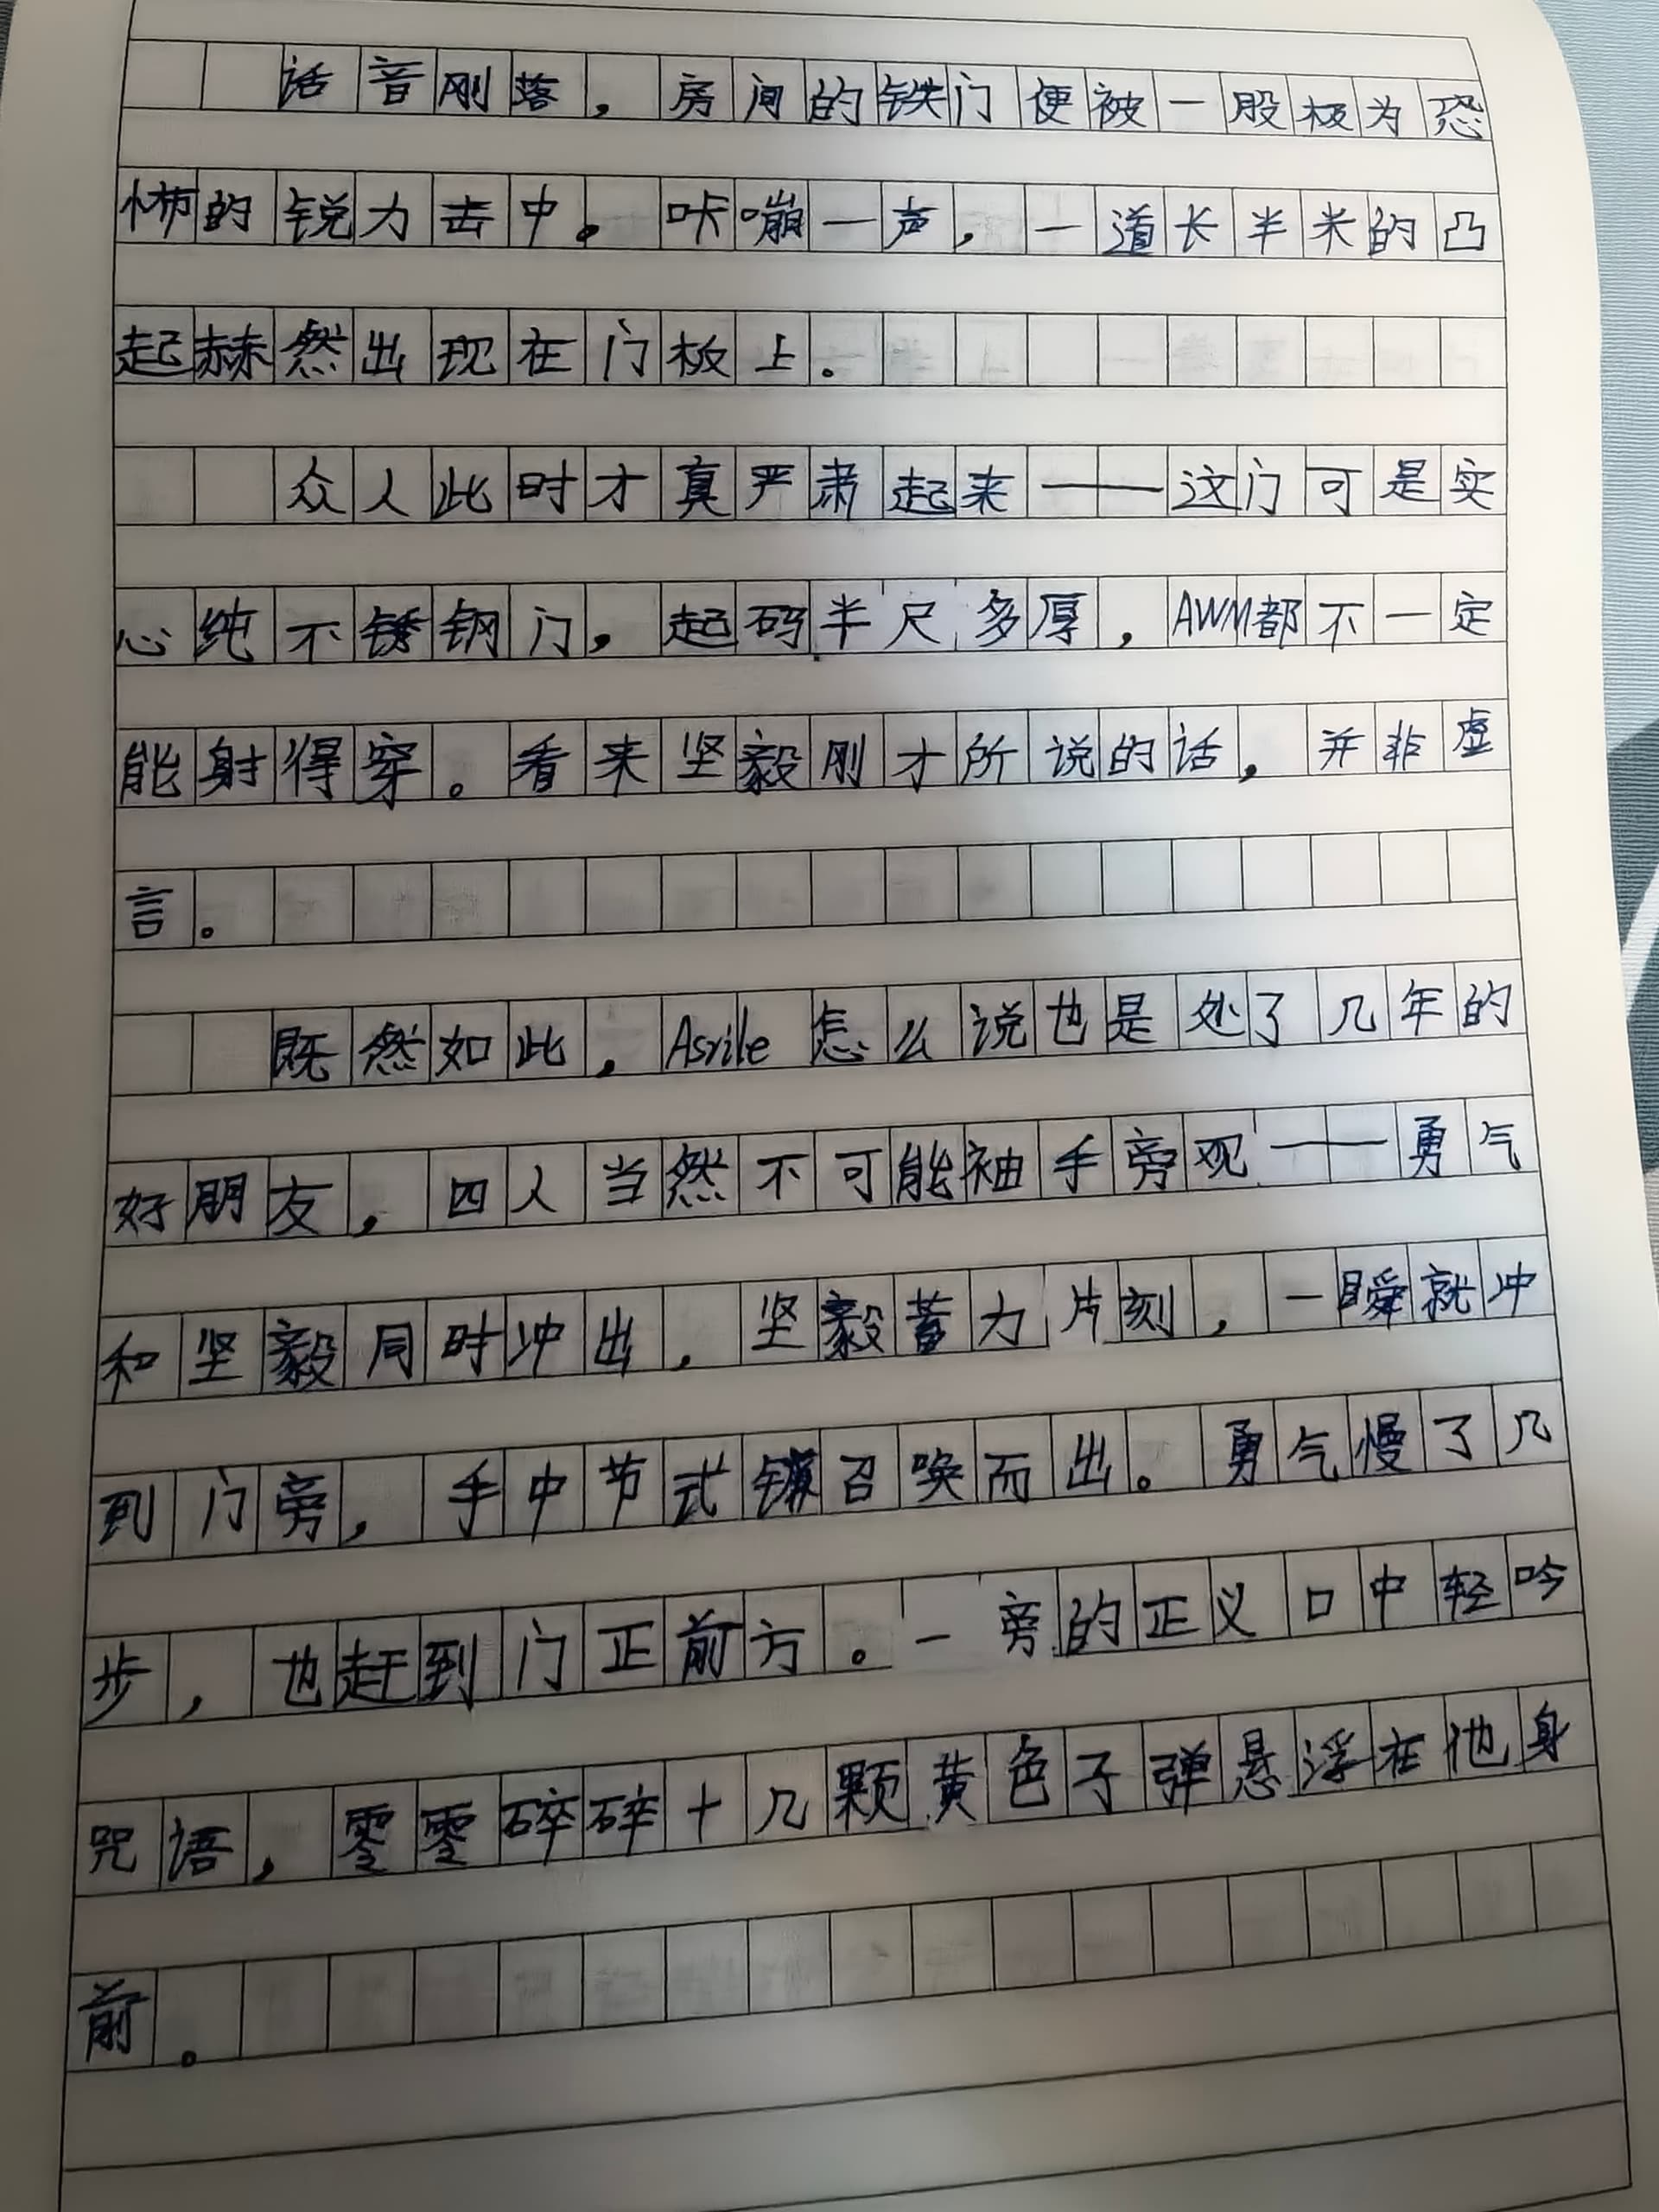 话音刚落，房间的铁门便被一股极为恐
怖的锐力击中。咔嘣一声，一道长半米的凸
起赫然出现在门板上。
众人此时才真严肃起来——这门可是实
心纯不锈钢门，起码半尺多厚，AWM都不一定
能射得穿。看来坚毅刚才所说的话，并非虚
言。
既然如此，Asrile怎么说也是处了几年的
好朋友，四人当然不可能袖手旁观——勇气
和坚毅同时冲出，坚毅蓄力片刻，一瞬就冲
到门旁，手中节式镰召唤而出。勇气慢了几
步，也赶到门正前方。一旁的正义口中轻吟
咒语，零零碎碎十几颗黄色子弹悬浮在他身
前。